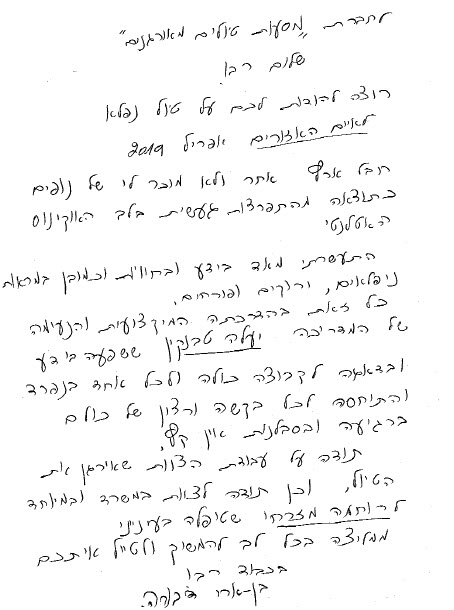 לחברת "מסעות טיולים מאורגנים"
שלום רב.
רוצה להודות לכם על טיול נפלא
לאיים האזורים אפריל 2019
חבל ארץ אחר ולא מוכר לי של נופים
כתוצאה מהתפרצות געשית בלב האוקינוס
האטלנטי
התעשרתי מאד בידע ובחוויות וכמובן במראות
ניפלאים, ירוקים ופורחים.
כל זאת בהדרכתה המיקצועית והנעימה
של המדריכה יעלה טבנקין ששפעה בידע
ובדאגה לקבוצה כולה ולכל אחד בנפרד
והתיחסה לכל בקשה ורצון של כולם
ברגיעה ובסבלנות אין קץ.
תודה על עבודת הצוות שאירגן את
הטיול, וכן תודה לצוות במשרד ובמיוחד
לרוחמה מזרחי שטיפלה בעניני
ממליצה בכל לב להמשיך ולטייל איתכם
בכבוד רב
בן-ארי